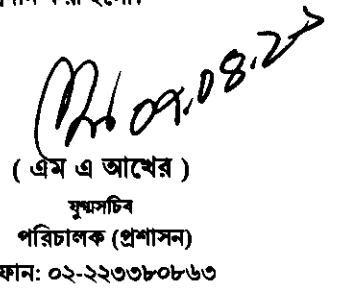 প্রদান করা হলো।
০৭.০৪.২১
( এম এ আখের )
যুগ্মসচিব
পরিচালক (প্রশাসন)
ফোন: ০২-২২৩৩৮০৮৬৩